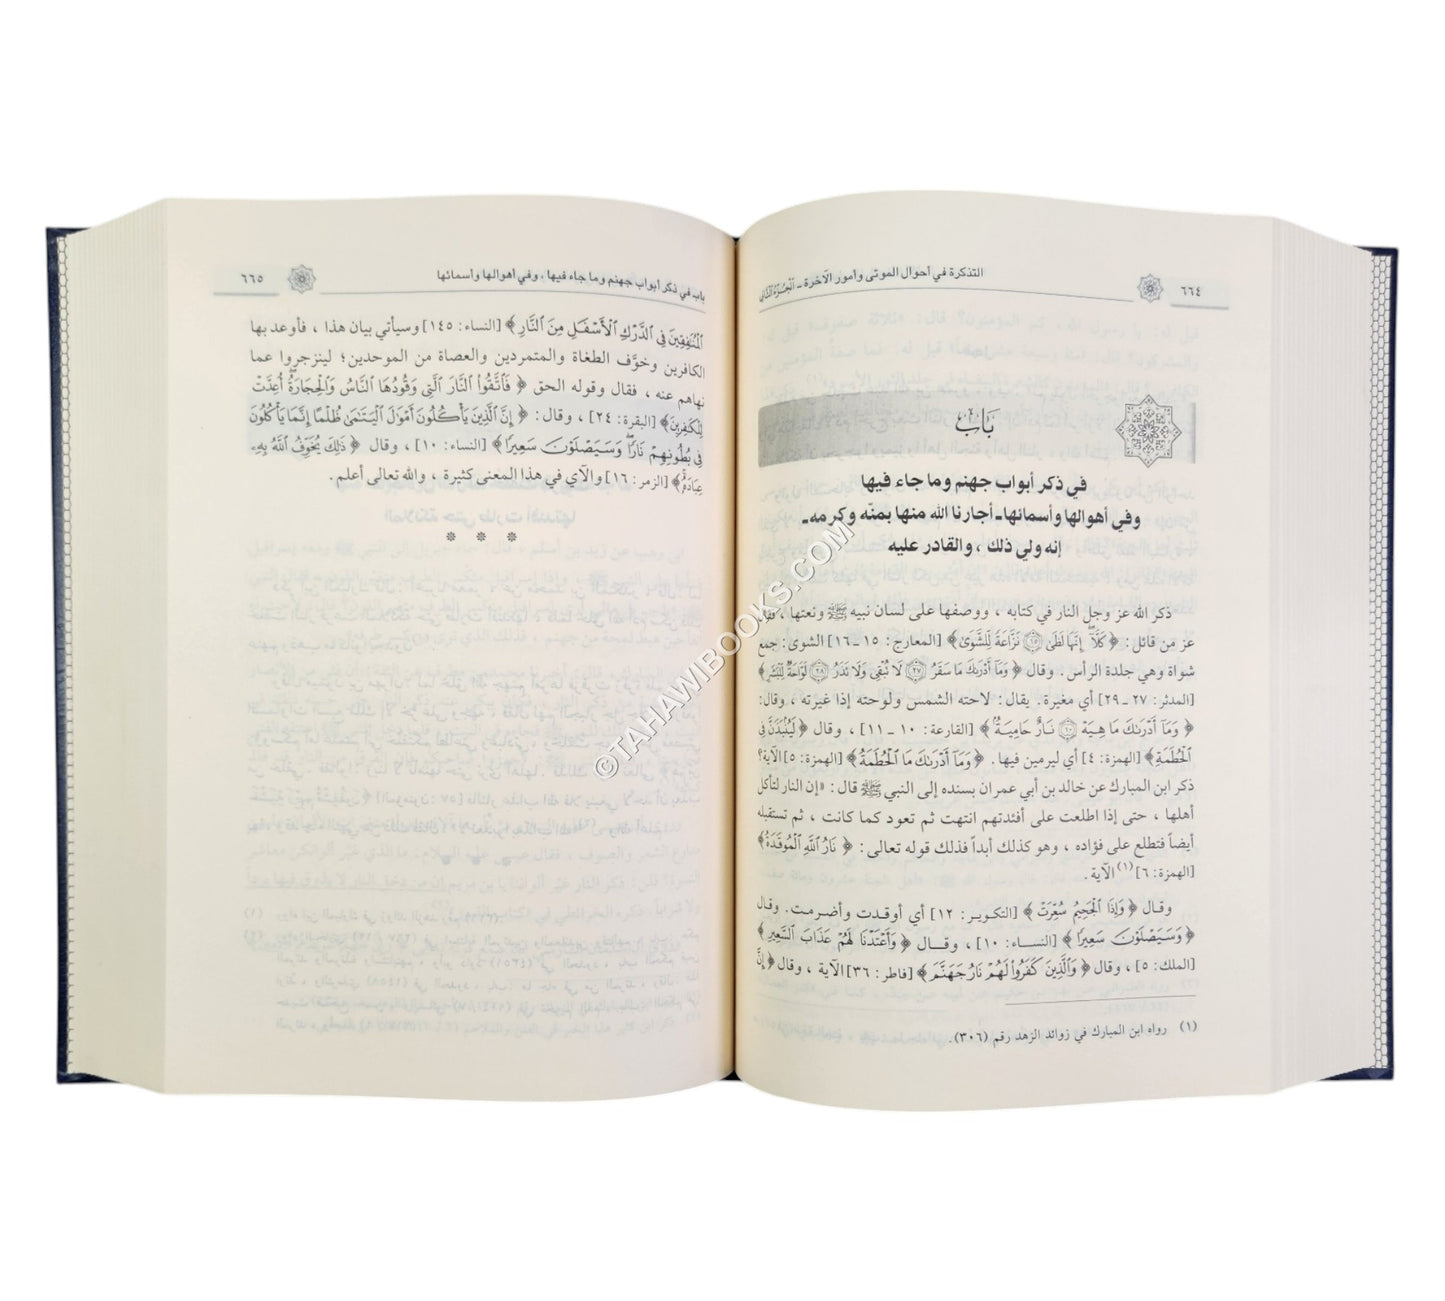 ٦٦٤
التذكرة في أحوال الموتى وأمور الآخرة - الجزء الثاني
باب
في ذكر أبواب جهنم وما جاء فيها
وفي أهوالها وأسمائها - أجارنا الله منها بمنّه وكرمه -
إنه ولي ذلك ، والقادر عليه
ذكر الله عز وجل النار في كتابه ، ووصفها على لسان نبيه ﷺ ونعتها ، فقال
عز من قائل : ﴿ كَلَّا إِنَّهَا لَظَىٰ ۝١٥ نَزَّاعَةً لِّلشَّوَىٰ ﴾ [المعارج : ١٥ ـ ١٦] الشوى : جمع
شواة وهي جلدة الرأس . وقال ﴿ وَمَآ أَدْرَىٰكَ مَا سَقَرُ ۝٢٧ لَا تُبْقِى وَلَا تَذَرُ ۝٢٨ لَوَّاحَةٌ لِّلْبَشَرِ ﴾
[المدثر : ٢٧ ـ ٢٩] أي مغيرة . يقال : لاحته الشمس ولوحته إذا غيرته ، وقال :
﴿ وَمَآ أَدْرَىٰكَ مَا هِيَهْ ۝١٠ نَارٌ حَامِيَةٌۢ ﴾ [القارعة : ١٠ ـ ١١] ، وقال ﴿ لَيُنۢبَذَنَّ فِى
ٱلْحُطَمَةِ ﴾ [الهمزة : ٤] أي ليرمين فيها . ﴿ وَمَآ أَدْرَىٰكَ مَا ٱلْحُطَمَةُ ﴾ [الهمزة : ٥] الآية؟
ذكر ابن المبارك عن خالد بن أبي عمران بسنده إلى النبي ﷺ قال : «إن النار لتأكل
أهلها ، حتى إذا اطلعت على أفئدتهم انتهت ثم تعود كما كانت ، ثم تستقبله
أيضاً فتطلع على فؤاده ، وهو كذلك أبداً فذلك قوله تعالى : ﴿ نَارُ ٱللَّهِ ٱلْمُوقَدَةُ ﴾
[الهمزة : ٦] (١) الآية .
وقال ﴿ وَإِذَا ٱلْجَحِيمُ سُعِّرَتْ ﴾ [التكوير : ١٢] أي أوقدت وأضرمت . وقال
﴿ وَسَيَصْلَوْنَ سَعِيرًا ﴾ [النساء : ١٠] ، وقال ﴿ وَأَعْتَدْنَا لَهُمْ عَذَابَ ٱلسَّعِيرِ ﴾
[الملك : ٥] ، وقال ﴿ وَٱلَّذِينَ كَفَرُوا۟ لَهُمْ نَارُ جَهَنَّمَ ﴾ [فاطر : ٣٦] الآية ، وقال ﴿ إِنَّ
(١) رواه ابن المبارك في زوائد الزهد رقم (٣٠٦).
باب في ذكر أبواب جهنم وما جاء فيها ، وفي أهوالها وأسمائها
٦٦٥
ٱلْمُنَٰفِقِينَ فِى ٱلدَّرْكِ ٱلْأَسْفَلِ مِنَ ٱلنَّارِ ﴾ [النساء : ١٤٥] وسيأتي بيان هذا ، فأوعد بها
الكافرين وخوَّف الطغاة والمتمردين والعصاة من الموحدين؛ لينزجروا عما
نهاهم عنه ، فقال وقوله الحق ﴿ فَٱتَّقُوا۟ ٱلنَّارَ ٱلَّتِى وَقُودُهَا ٱلنَّاسُ وَٱلْحِجَارَةُ أُعِدَّتْ
لِلْكَٰفِرِينَ ﴾ [البقرة : ٢٤] ، وقال : ﴿ إِنَّ ٱلَّذِينَ يَأْكُلُونَ أَمْوَٰلَ ٱلْيَتَٰمَىٰ ظُلْمًا إِنَّمَا يَأْكُلُونَ
فِى بُطُونِهِمْ نَارًا وَسَيَصْلَوْنَ سَعِيرًا ﴾ [النساء : ١٠] ، وقال ﴿ ذَٰلِكَ يُخَوِّفُ ٱللَّهُ بِهِۦ
عِبَادَهُۥ ﴾ [الزمر : ١٦] والآي في هذا المعنى كثيرة ، والله تعالى أعلم .
* * *
©TAHAWIBOOKS.COM